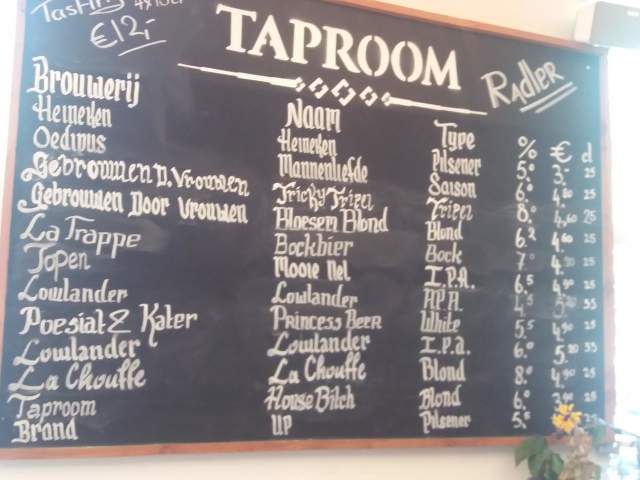 Tasting 4x15cl
€12,-
TAPROOM
Radler
Brouwerij Naam Type % € d
Heineken Heineken Pilsener 5.0 3,- 25
Oedipus Mannenliefde Saison 6.0 4.80 25
Gebrouwen D. Vrouwen Tricky Tripel Tripel 8.0 4.60 25
Gebrouwen Door Vrouwen Bloesem Blond Blond 6.2 4.60 25
La Trappe Bockbier Bock 7.0 4.90 25
Jopen Mooie Nel I.P.A. 6.5 4.90 25
Lowlander Lowlander A.P.A. 4.5 5.20 35
Poesiat & Kater Princess Beer White 5.5 4.90 25
Lowlander Lowlander I.P.A. 6.0 5.20 33
La Chouffe La Chouffe Blond 8.0 4.90 25
Taproom House Bitch Blond 6.0 3.90 25
Brand UP Pilsener 5.5